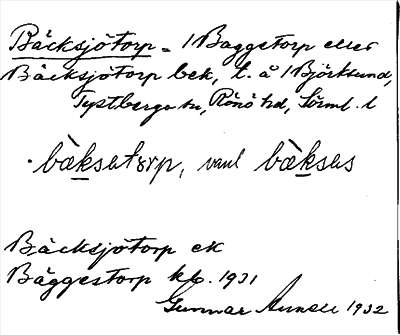 Bäcksjötorp = 1 Baggetorp eller
Bäcksjötorp bek, l. å 1 Björksund,
Tystberga sn, Rönö hd, Sörml. l
bàksətɔrp, vanl bàksəs
Bäcksjötorp ek
Bäggestorp kb. 1931
Gunnar 1932